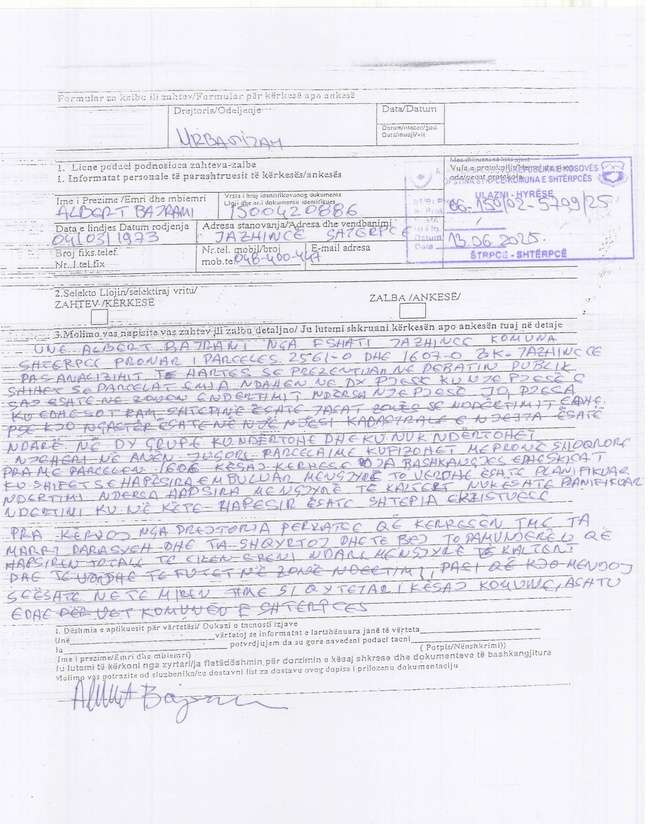 Formular za kaibu ili zahtev/Formular për kërkesë apo ankesë
Drejtoria/Odeljenje
URBANIZAM
Data/Datum
1. Licne podaci podnosioca zahteva-zalbe
1. Informatat personale të parashtruesit të kërkesës/ankesës
Vula e protokollit
REPUBLIKA E KOSOVËS
KOMUNA E SHTËRPCËS
ULAZNI - HYRËSE
06-150/02-5709/25
Datum
Data
13.06.2025
ŠTRPCE - SHTËRPCË
Ime i Prezime /Emri dhe mbiemri
ALBERT BAJRAMI
Vrsta i broj identifikovanog dokumenta
1500420886
Data e lindjes Datum rodjenja
04/03/1973
Adresa stanovanja/Adresa dhe vendbanimi
JAZHINCË SHTERPCE
Broj fiks.telef.
Nr. I.tel.fix
Nr.tel. mobil/broj
mob.te
048-400-447
E-mail adresa
2.Selekto Llojin/selektiraj vrstu/
ZAHTEV /KËRKESË
ZALBA /ANKESË/
3.Molimo vas napisite vas zahtev ili zalbu detaljno/ Ju lutemi shkruani kërkesën apo ankesën tuaj në detaje
UNË ALBERT BAJRAMI NGA FSHATI JAZHINCE KOMUNA
SHTERPCE PRONAR I PARCELES 2561-0 DHE 1607-0 ZK-JAZHINCE
PAS ANALIZIMIT TE HARTES SE PREZENTUAR NE DEBATIN PUBLIK
SHIHET SE PARCELAT E MIA NDAHEN NE DY PJESE KU NJE PJESE E
SAJ ESHTE NE ZONEN E NDERTIMIT NDERSA NJE PJESE JO, PJESA
KU EDHE SOT KAM SHTEPINE ESHTE JASHT ZONES SE NDERTIMIT EDHE
PSE KJO NGASTER ESHTE NË NJE NJESI KADASTRALE E NJEJTA ESHTE
NDARË NE DY GRUPE KU NDERTOHET DHE KU NUK NDËRTOHET
NJEHERI NË ANEN JUGORE PARCELA IME KUFIZOHET ME PRONË SHOQRORE
PRA ME PARCELEN KËSAJ KERKESE JA BASHKANGJES EDHE SKICAT
KU SHIFET SE HAPËSIRA E MBULUAR ME NGJYRË TE VERDHE ËSHTE PLANIFIKUAR
NDERTIMI NDERSA HAPSIRA ME NGJYRË TE KALTERT NUK ËSHTE PLANIFIKUAR
NDERTIMI KU NË KËTE HAPESIR ËSHTE SHTEPIA EKZISTUESE
PRA KERKOJ NGA DREJTORIA PERKATËSE QË KERKESEN TIME TA
MARRI PARASYSH DHE TA SHQYRTOJ DHE TE BEJ TO PAMUNDEREN QË
HAPSIREN TOTALE TE CILEN E KENI NDARË ME NGJYRË TE KALTERT
DHE TE VERDHE TE FUTET NË ZONË NDERTIMI, PASI QË KJO MENDOJ
SE ËSHTE NE TE MIREN TIME SI QYTETAR I KËSAJ KOMUNE, ASHTU
EDHE PËR VET KOMUNËN E SHTËRPCËS
1. Dëshmia e aplikuesit për vërtetësi/ Dukazi e tacnosti izjave
Unë vërtetoj se informatat e lartshënuara janë të vërteta
Ia potvrdjujem da su gore navedeni podaci tacni
Ime i prezime/Emri dhe mbiemri
( Potpis/Nënshkrimi))
Ju lutemi të kërkoni nga zyrtari/ja fletëdëshmin për dorzimin e kësaj shkrese dhe dokumenteve të bashkangjitura
Molimo vas potrazite od sluzbenika/ce dostavni list za dostavu ovog dopisa i prilozenu dokumentaciju
Albert Bajrami